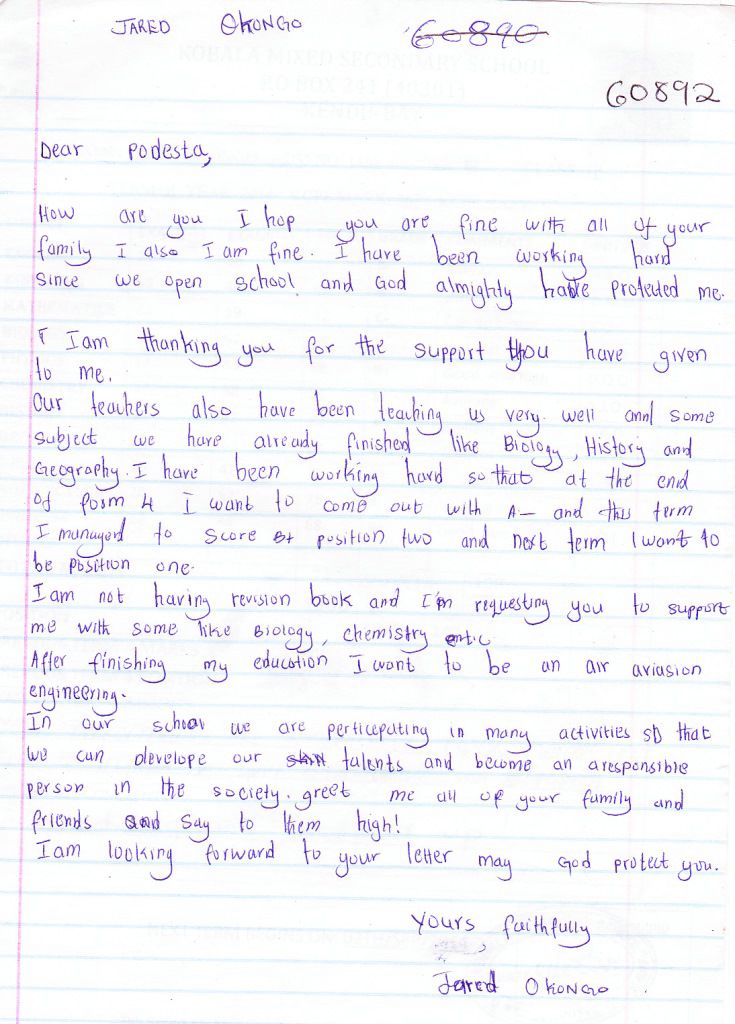 JARED OKONGO
60890
60892
KOBALA MIXED SECONDARY SCHOOL
Dear Podesta,
How are you I hop you are fine with all of your
family I also I am fine. I have been working hard
since we open school and God almighty have protected me.
I am thanking you for the support you have given
to me.
Our teachers also have been teaching us very well and some
subject we have already finished like Biology, History and
Geography. I have been working hard so that at the end
of form 4 I want to come out with A- and this term
I managed to score B+ position two and next term I want to
be position one.
I am not having revision book and I'm requesting you to support
me with some like Biology, chemistry etc
After finishing my education I want to be an air aviasion
engineering.
In our school we are perticeputing in many activities so that
we can develope our talents and become an aresponsible
person in the society. greet me all of your family and
friends and say to them high!
I am looking forward to your letter may God protect you.
Yours faithfully
Jared Okongo